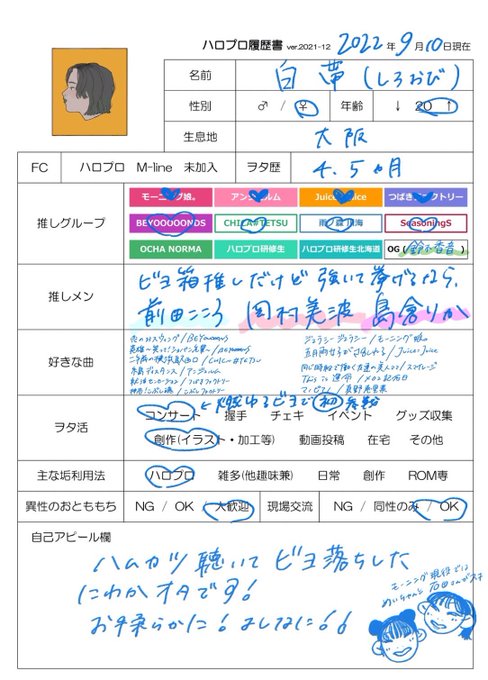 ハロプロ履歴書 ver.2021-12 2022年9月10日現在
名前 白帯(しろおび)
性別 ♂ / ♀ 年齢 ↓ 20 ↑
生息地 大阪
FC ハロプロ M-line 未加入 ヲタ歴 4.5ヶ月
推しグループ
モーニング娘。 アンジュルム Juice=Juice つばきファクトリー
BEYOOOOONDS CHICA#TETSU 雨ノ森 川海 SeasoningS
OCHA NORMA ハロプロ研修生 ハロプロ研修生北海道 OG (鈴木香音)
推しメン
ビヨ箱推しだけど強いて挙げるなら、
前田こころ 岡村美波 島倉りか
好きな曲
恋のおスウィング/BEYOOOOONDS
英雄〜笑って!ショパン先輩〜/BEYOOOOONDS
二年前の横浜蜃気楼/CHICA#TETSU
/アンジュルム
/つばきファクトリー
/こぶしファクトリー
ジェラシー ジェラシー/モーニング娘。
五月雨美女がさ乱れる/Juice=Juice
同じ時給で働く友達の美人ママ/スマイレージ
This is 運命/メロン記念日
マノピアノ/真野恵里菜
ヲタ活
コンサート 握手 チェキ イベント グッズ収集
創作(イラスト・加工等) 動画投稿 在宅 その他
主な垢利用法 ハロプロ 雑多(他趣味兼) 日常 創作 ROM専
異性のおとももち NG / OK / 大歓迎 現場交流 NG / 同性のみ / OK
自己アピール欄
ハムカツ聴いてビヨ落ちした
にわかオタです!
お手柔らかに!よしなに!!
モーニング現役では
めいちゃんと石田さんがスキ